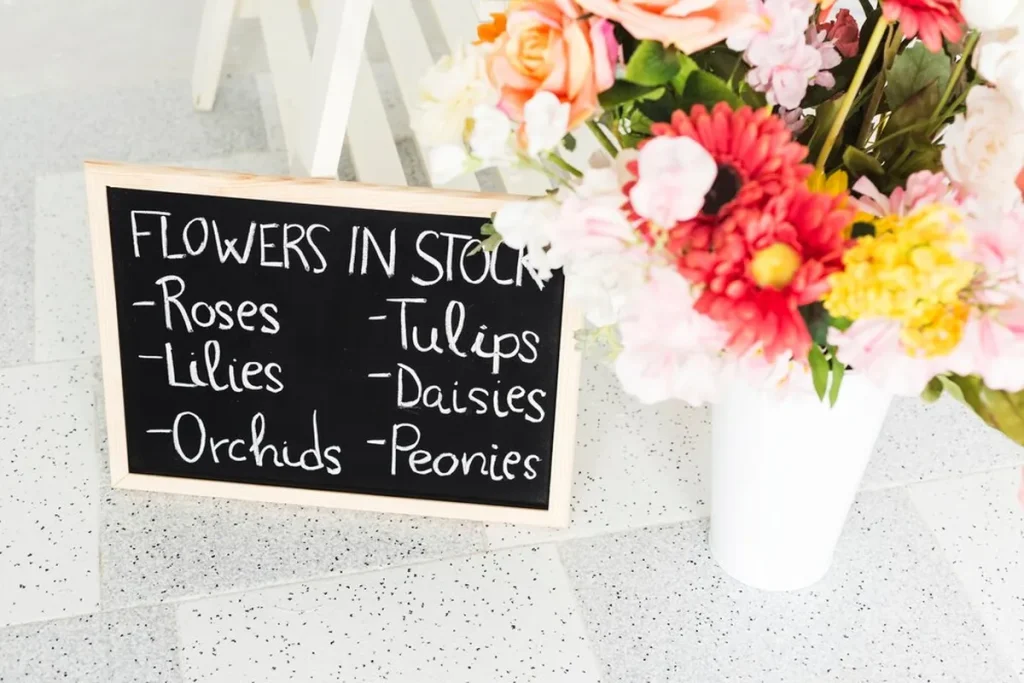 FLOWERS IN STOCK
-Roses
-Lilies
-Orchids
-Tulips
-Daisies
-Peonies